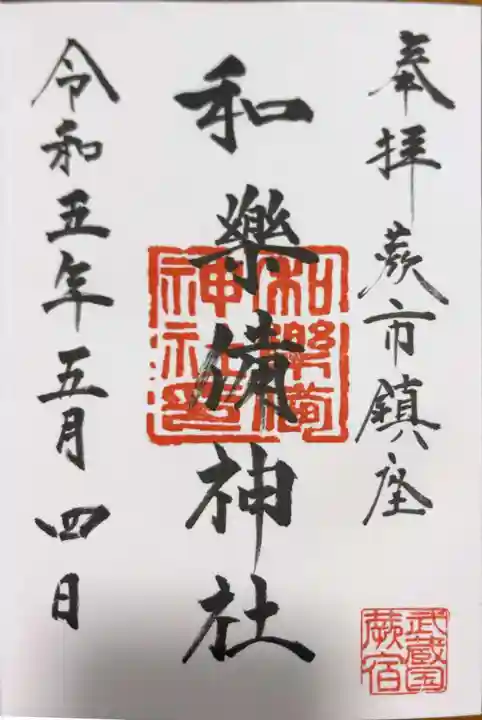 奉拝蕨市鎮座
武蔵国
蕨宿
和樂備神社
和樂備
神社印
令和五年五月四日